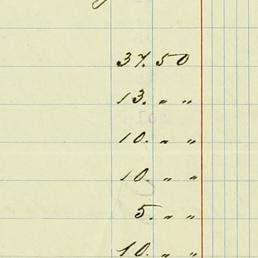 37.50
13. " "
10. " "
10. " "
5. " "
10. " "